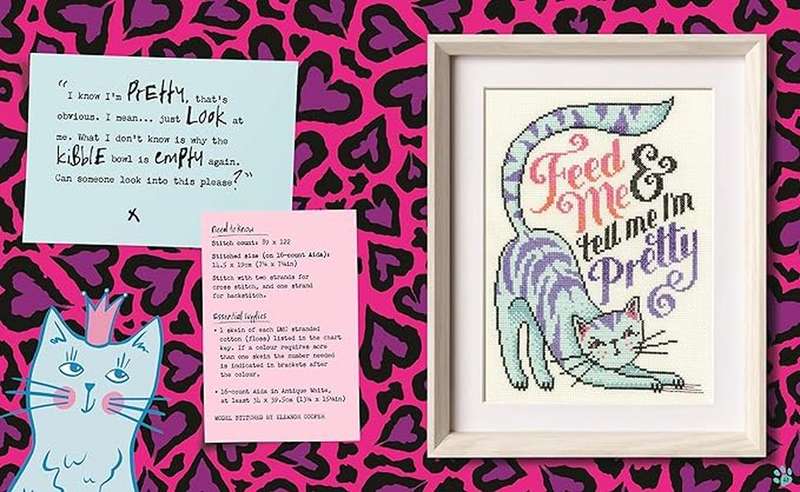 “I know I'm Pretty, that's
obvious. I mean... just LOOK at
me. What I don't know is why the
kibble bowl is empty again.
Can someone look into this please?”
x
Need to know
Stitch count: 89 x 122
Stitched size (on 16-count Aida):
14.5 x 19cm (7½ x 7½in)
Stitch with two strands for
cross stitch, and one strand
for backstitch.
Essential supplies
• 1 skein of each DMC stranded
cotton (floss) listed in the chart
key. If a colour requires more
than one skein the number needed
is indicated in brackets after
the colour.
• 16-count Aida in Antique White,
at least 34 x 39.5cm
MODEL STITCHED BY ELEANOR COOPER
Feed
Me &
tell me I'm
Pretty